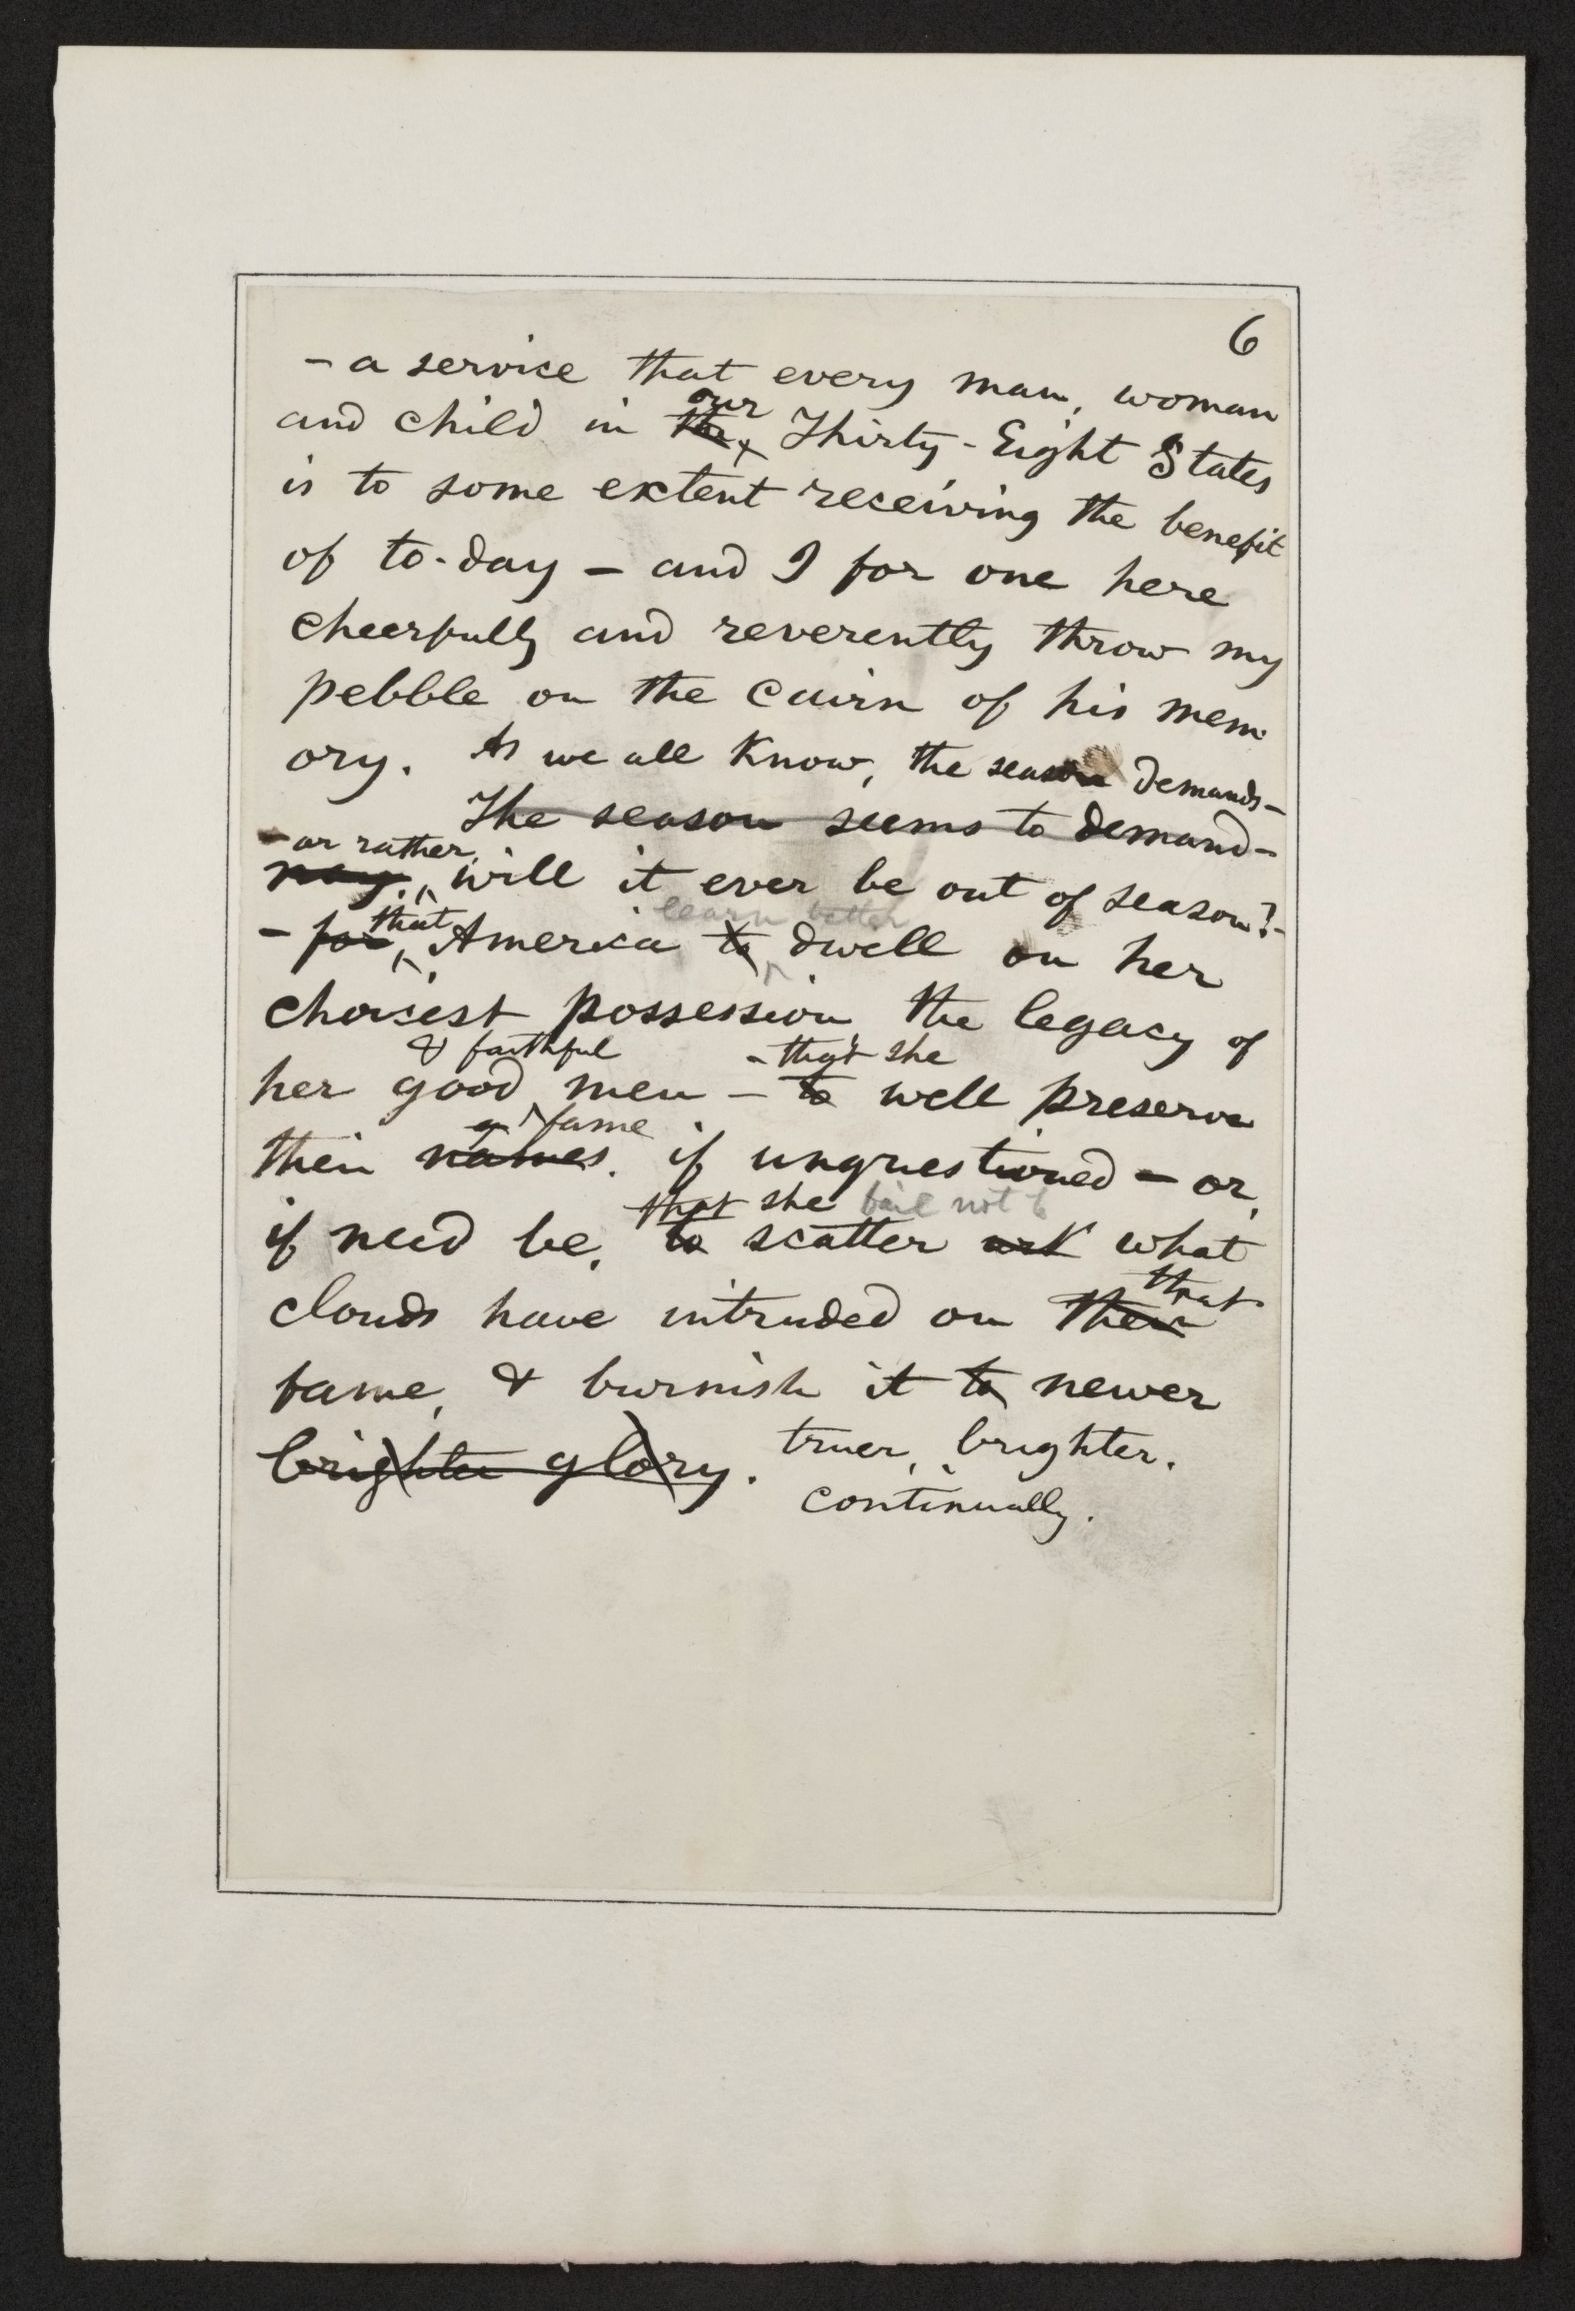 6
- a service that every man, woman
our
and child in the Thirty-Eight States
is to some extent receiving the benefit
of to-day — and I for one here
cheerfully and reverently throw my
pebble on the cairn of his mem-
ory. As we all know, the season demands—
The season seems to demand—
- or rather,
nay, will it ever be out of season?-
that learn better
- for America to dwell on her
choicest possession, the legacy of
& faithful - that she
her good men - to well preserve
fame
their names. if unquestioned — or,
that she fail not to
if need be, to scatter what
that
clouds have intruded on their
fame, & burnish it to newer
brighter glory. truer, brighter.
continually.